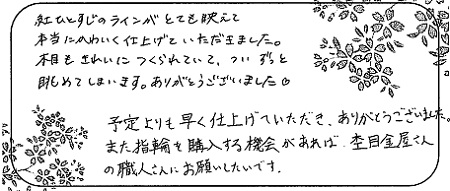 紅ひとすじのラインがとても映えて
本当にかわいく仕上げていただきました。
木目もきれいにつくられていて、ついずっと
眺めてしまいます。ありがとうございました
予定よりも早く仕上げていただき、ありがとうございました。
また指輪を購入する機会があれば、杢目金屋さん
の職人さんにお願いしたいです。